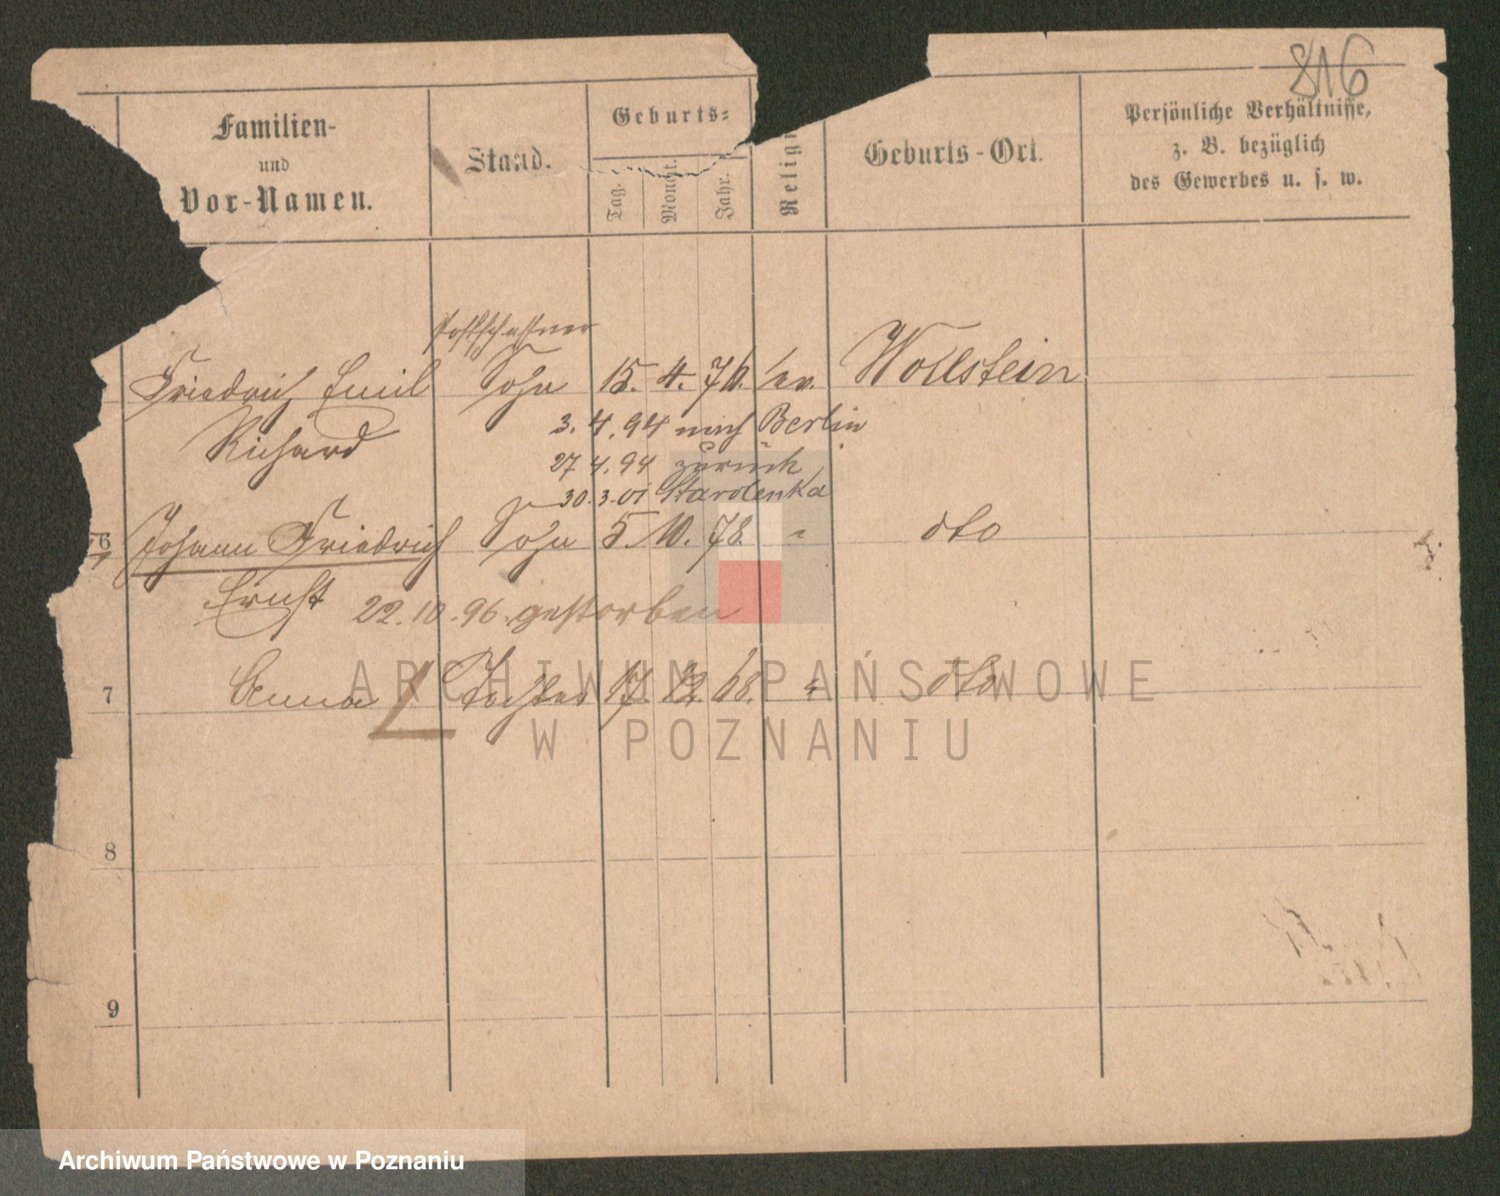 816
Familien-
und
Vor-Namen.
Stand.
Geburts=
Tag.
Monat.
Jahr.
Religi
Geburts-Ort.
Persönliche Verhältnisse,
z. B. bezüglich
des Gewerbes u. s. w.
Postschaffner
Friedrich Emil Sohn 15. 4. 76. ev. Wollstein
Richard 3. 4. 94 nach Berlin
27 4. 94 zurück
30. 3. 01 Starolenka
6 Johann Friedrich Sohn 5. 10. 78. " dto
7
Ernst 22. 10. 96. gestorben
7 Anna Tochter 17. 12. 68. " dto
8
9
ARCHIWUM PAŃSTWOWE
W POZNANIU
Archiwum Państwowe w Poznaniu